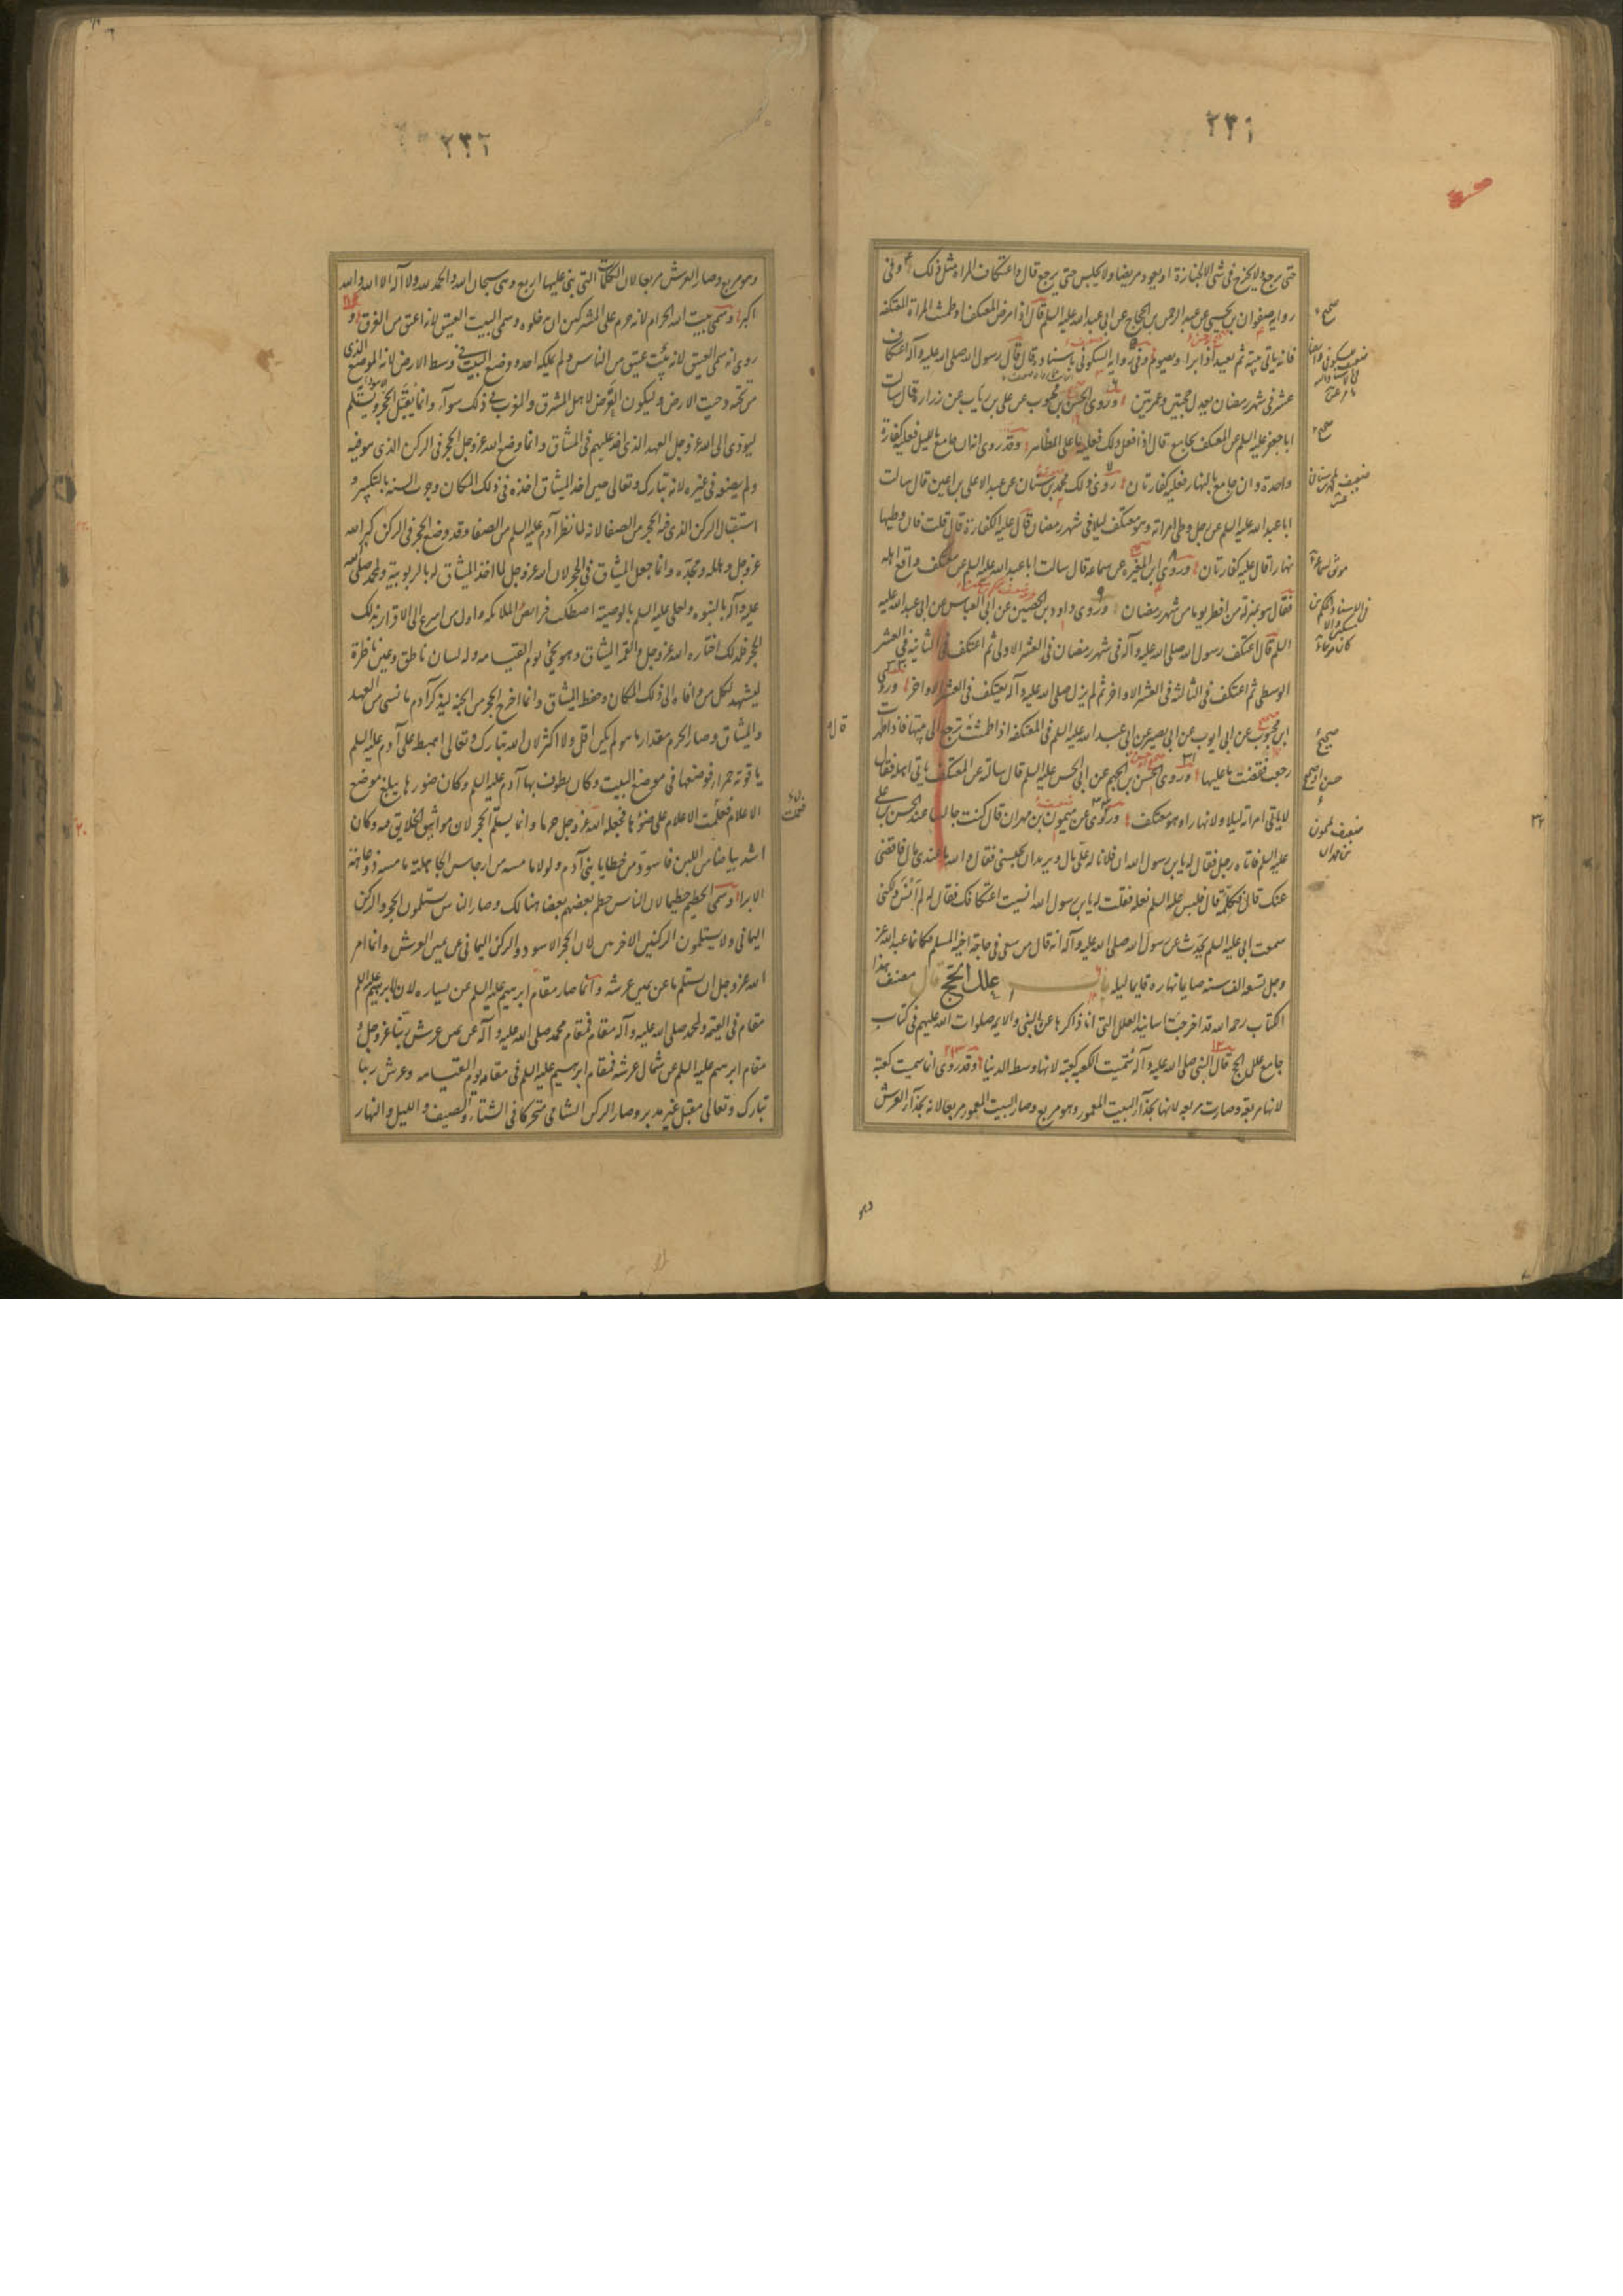 ٢٣١
حتى يرجع ولا يخرج في شئ الا لجنازة او يعود مريضا ولا يجلس حتى يرجع قال واعتكاف المراة مثل ذلك وفي
رواية صفوان بن يحيى عن عبد الرحمن بن الحجاج عن ابي عبد الله عليه السلم قال اذا مرض المعتكف او طمثت المراة المعتكفة
فانه ياتي بيته ثم يعيد اذا برا ويصوم وفي رواية السكوني باسناده قال قال رسول الله صلى الله عليه وآله اعتكاف
عشر في شهر رمضان يعدل حجتين وعمرتين وروى الحسن بن محبوب عن علي بن رياب عن زرارة قال سالت
ابا جعفر عليه السلم عن المعتكف يجامع قال اذا فعل ذلك فعليه ما على المظاهر وقد روى انه ان جامع بالليل فعليه كفارة
واحدة وان جامع بالنهار فعليه كفارتان روى ذلك محمد بن سنان عن عبد الاعلى بن اعين قال سالت
ابا عبد الله عليه السلم عن رجل وطى امراته وهو معتكف ليلا في شهر رمضان قال عليه الكفارة قال قلت فان وطيها
نهارا قال عليه كفارتان وروى ابن المغيرة عن سماعة قال سالت ابا عبد الله عليه السلم عن معتكف واقع اهله
فقال هو بمنزلة من افطر يوما من شهر رمضان وروى داود بن الحصين عن ابي العباس عن ابي عبد الله عليه
السلم قال اعتكف رسول الله صلى الله عليه وآله في شهر رمضان في العشر الاولى ثم اعتكف في الثانية في العشر
الوسطى ثم اعتكف في الثالثة في العشر الاواخر ثم لم يزل صلى الله عليه وآله يعتكف في العشر الاواخر وروى
ابن محبوب عن ابي ايوب عن ابي بصير عن ابي عبد الله عليه السلم في المعتكفة اذا طمثت ترجع الى بيتها فاذا طهرت
رجعت فقضت ما عليها وروى الحسن بن الجهم عن ابي الحسن عليه السلم قال سالته عن المعتكف ياتي اهله فقال
لا ياتي امراته ليلا ولا نهارا وهو معتكف وروى عن ميمون بن مهران قال كنت جالسا عند الحسن بن علي
عليه السلم فاتاه رجل فقال له يا بن رسول الله ان فلانا له علي مال ويريد ان يحبسني فقال والله ما عندي مال فاقضي
عنك قال فكلمه قال فلبس عليه السلم نعله فقلت له يا بن رسول الله انسيت اعتكافك فقال لم انس ولكني
سمعت ابي عليه السلم يحدث عن رسول الله صلى الله عليه وآله انه قال من سعى في حاجة اخيه المسلم فكانما عبد الله عز
وجل تسعة الف سنة صايما نهاره قايما ليله باب علل الحج قال مصنف هذا
الكتاب رحمه الله قد اخرجت اسانيد العلل التي انا ذاكرها عن النبي والايمه صلوات الله عليهم في كتاب
جامع علل الحج قال النبي صلى الله عليه وآله سميت الكعبه كعبة لانها وسط الدنيا وقد روى انما سميت كعبة
لانها مربعة وصارت مربعه لانها بحذآء البيت المعمور وهو مربع وصار البيت المعمور مربعا لانه بحذآء العرش
وهو
صحيح
ضعيف محمد بن سنان
موثق سماعة
صحيح
ضعيف ميمون بن مهران
٢٣٢
وهو مربع وصار العرش مربعا لان الكلمات التي بني عليها اربع وهي سبحان الله والحمد لله ولا اله الا الله والله
اكبر وسمي بيت الله الحرام لانه حرم على المشركين ان يدخلوه وسمي البيت العتيق لانه اعتق من الغرق و
روى انه سمي العتيق لانه بيت عتيق من الناس ولم يملكه احد ووضع البيت في وسط الارض لانه الموضع الذي
من تحته دحيت الارض وليكون الفرض لاهل المشرق والمغرب في ذلك سوآء وانما يقبل الحجر ويستلم
ليودى الى الله عز وجل العهد الذي اخذ عليهم في الميثاق وانما وضع الله عز وجل الحجر في الركن الذي هو فيه
ولم يضعه في غيره لانه تبارك وتعالى حين اخذ الميثاق اخذه في ذلك المكان وجرت السنة بالتكبير و
استقبال الركن الذي فيه الحجر من الصفا لانه لما نظر آدم عليه السلم من الصفا وقد وضع الحجر في الركن كبر الله
عز وجل وهلله ومجده وانما جعل الميثاق في الحجر لان الله عز وجل لما اخذ الميثاق له بالربوبية ولمحمد صلى الله
عليه وآله بالنبوه ولعلي عليه السلم بالوصية اصطكت فرائص الملائكه واول من اسرع الى الاقرار بذلك
الحجر فلذلك اختاره الله عز وجل والقمه الميثاق وهو يجئ يوم القيامه وله لسان ناطق وعين ناظرة
ليشهد لكل من وافاه الى ذلك المكان وحفظ الميثاق وانما اخرج الحجر من الجنة ليذكر آدم ما نسى من العهد
والميثاق وصار الحرم مقدار ما هو لم يكن اقل ولا اكثر لان الله تبارك وتعالى اهبط على آدم عليه السلم
ياقوتة حمراء فوضعها في موضع البيت وكان يطوف بها آدم عليه السلم وكان ضوءها يبلغ موضع
الاعلام فعلمت الاعلام على ضوئها فجعله الله عز وجل حرما وانما يستلم الحجر لان مواثيق الخلايق فيه وكان
اشد بياضا من اللبن فاسود من خطايا بني آدم ولولا ما مسه من ارجاس الجاهلية ما مسه ذو عاهة
الا برا وسمي الحطيم حطيما لان الناس يحطم بعضهم بعضا هنالك وصار الناس يستلمون الحجر والركن
اليماني ولا يستلمون الركنين الاخرين لان الحجر الاسود والركن اليماني عن يمين العرش وانما امر
الله عز وجل ان يستلم ما عن يمين عرشه وانما صار مقام ابرهيم عليه السلم عن يساره لان لابرهيم عليه السلم
مقام في القيمه ولمحمد صلى الله عليه وآله مقام فمقام محمد صلى الله عليه وآله عن يمين عرش ربنا عز وجل و
مقام ابرهيم عليه السلم عن شمال عرشه فمقام ابرهيم عليه السلم في مقامه يوم القيامه وعرش ربنا
تبارك وتعالى مقبل غير مدبر وصار الركن الشامي متحركا في الشتاء والصيف والليل والنهار